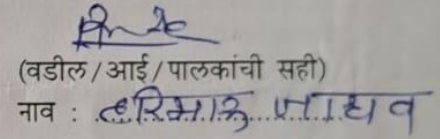 (वडील/आई/पालकांची सही)
नाव : हरिभाऊ जाधव